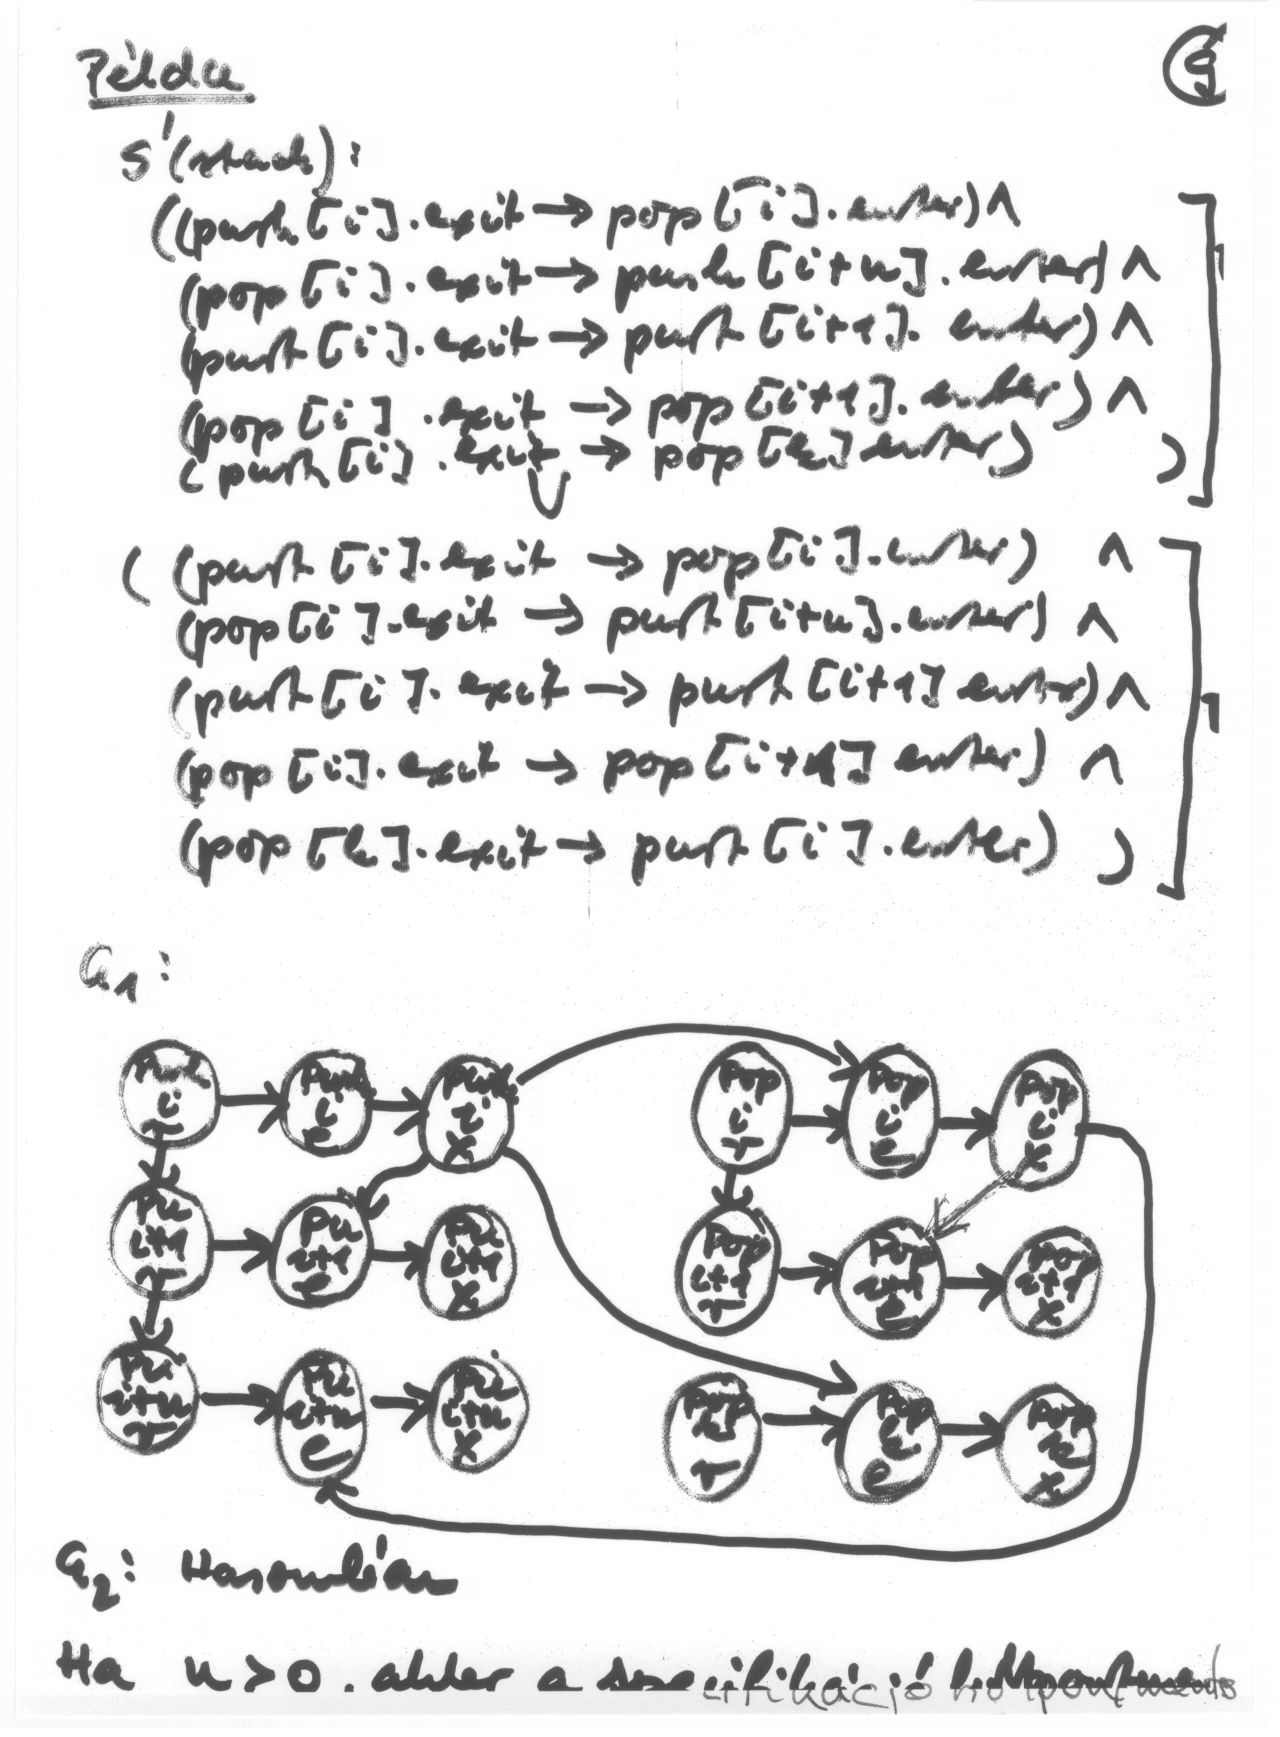 Példa
S'(stack):
((push[i].exit → pop[i].enter) ∧
(pop[i].exit → push[i+n].enter) ∧
(push[i].exit → push[i+1].enter) ∧
(pop[i].exit → pop[i+1].enter) ∧
(push[i].exit → pop[k]enter) )
∨
((push[i].exit → pop[i].enter) ∧
(pop[i].exit → push[i+n].enter) ∧
(push[i].exit → push[i+1]enter) ∧
(pop[i].exit → pop[i+1]enter) ∧
(pop[k].exit → push[i].enter) )
G1:
Push i r
Push i e
Push i x
Pop i r
Pop i e
Pop i x
Pu i+1 r
Pu i+1 e
Pu i+1 x
Pop i+1 r
Pop i+1 e
Pop i+1 x
Pu i+n r
Pu i+n e
Pu i+n x
Pop k r
Pop k e
Pop k x
G2: Hasonlóan
Ha n>0. akkor a specifikáció holtpontmentes